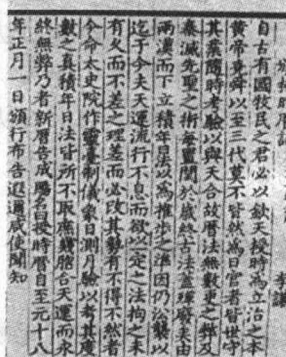 頒授時曆詔 李謙
自古有國牧民之君必以欽天授時為立治之本
黃帝堯舜以至三代莫不皆然為日官者皆世守
其業隨時考驗以與天合故曆法無數更之弊及
秦滅先聖之術每置閏於歲終古法蓋殫廢矣由
兩漢而下立積年日法以為推步之準因仍沿襲以
迄于今夫天運流行不息而欲以一定之法拘之未
有久而不差之理差而必改其勢有不得不然者
今命太史院作靈臺制儀象日測月驗以考其度
數之真積年日法皆所不取庶幾脗合天運而永
終無弊乃者新曆告成賜名曰授時曆自至元十八
年正月一日頒行布告遐邇咸使聞知